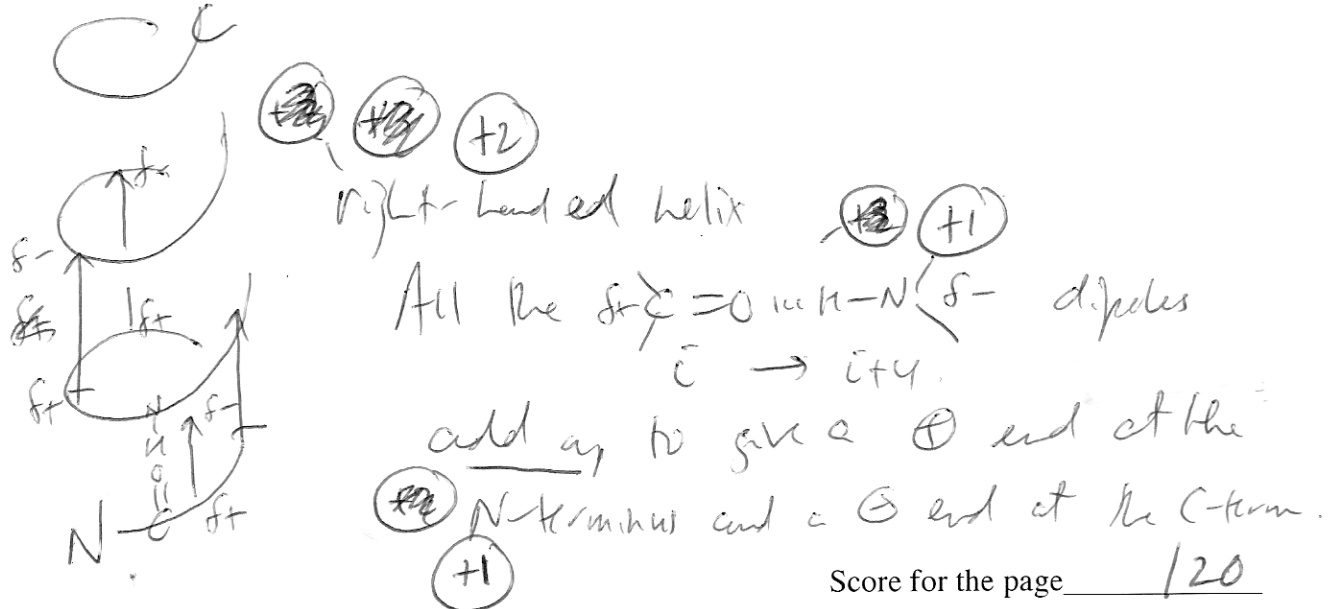 C
δ-
+2
right-handed helix
+1
δ-
All the δ+ C=O ıııı H-N δ- dipoles
δ+
i → i+4
δ+
N
H
O
δ-
add up to give a ⊕ end at the
N-terminus and a ⊖ end at the C-term.
N-C δ+
+1
Score for the page /20